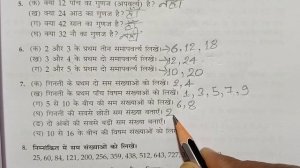 5. (क) क्या 12 पाँच का गुणज (अपवर्त्य) है? नहीं
(ख) क्या 24 आठ का गुणज है? हाँ
(ग) क्या 42 सात का गुणज है? हाँ
(घ) क्या 32 नौ का गुणज है? नहीं
6. (क) 2 और 3 के प्रथम तीन समापवर्त्य लिखें। 6, 12, 18
(ख) 3 और 4 के प्रथम दो समापवर्त्य लिखें। 12, 24
(ग) 2 और 5 के प्रथम दो समापवर्त्य लिखें। 10, 20
7. (क) गिनती के प्रथम दो सम संख्याओं को लिखें। 2, 4
(ख) गिनती के प्रथम पाँच विषम संख्याओं को लिखें। 1, 2, 5, 7, 9
(ग) 5 से 10 के बीच की सम संख्याओं को लिखें। 6, 8
(घ) गिनती की सबसे छोटी सम संख्या बताएँ। 2
(च) 10 से 16 के बीच की विषम संख्याओं को लिखें।
8. निम्नांकित में सम संख्याओं को लिखें।
25, 60, 84, 121, 200, 256, 359, 438, 512, 643, 727,